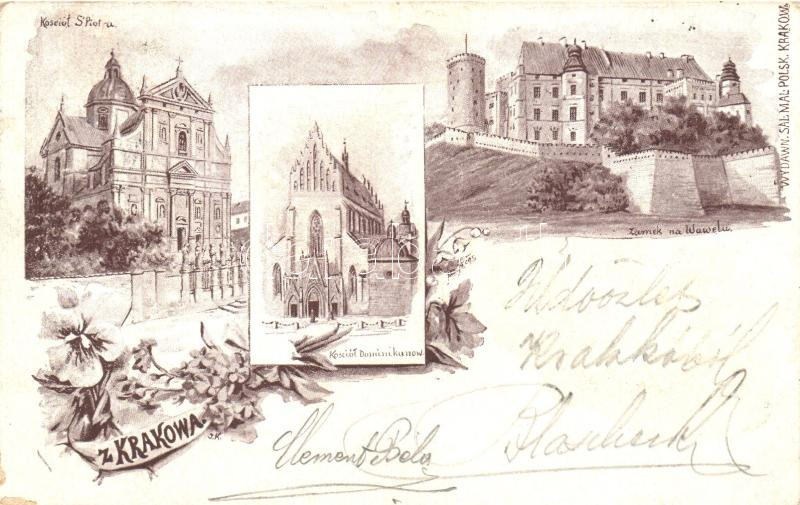 Kościół Ś Piotra.
Kościół Dominikanow.
Zamek na Wawelu.
WYDAWN. SAL. MAL. POLSK. KRAKÓW.
Z KRAKOWA.
J.K.
Üdvözlet
Krakkóból
Clement Béla